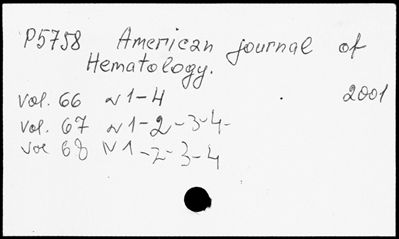 P5758 American journal of
Hematology.
vol. 66 N 1-4 2001
vol. 67 N 1-2-3-4-
vol 68 N 1-2-3-4